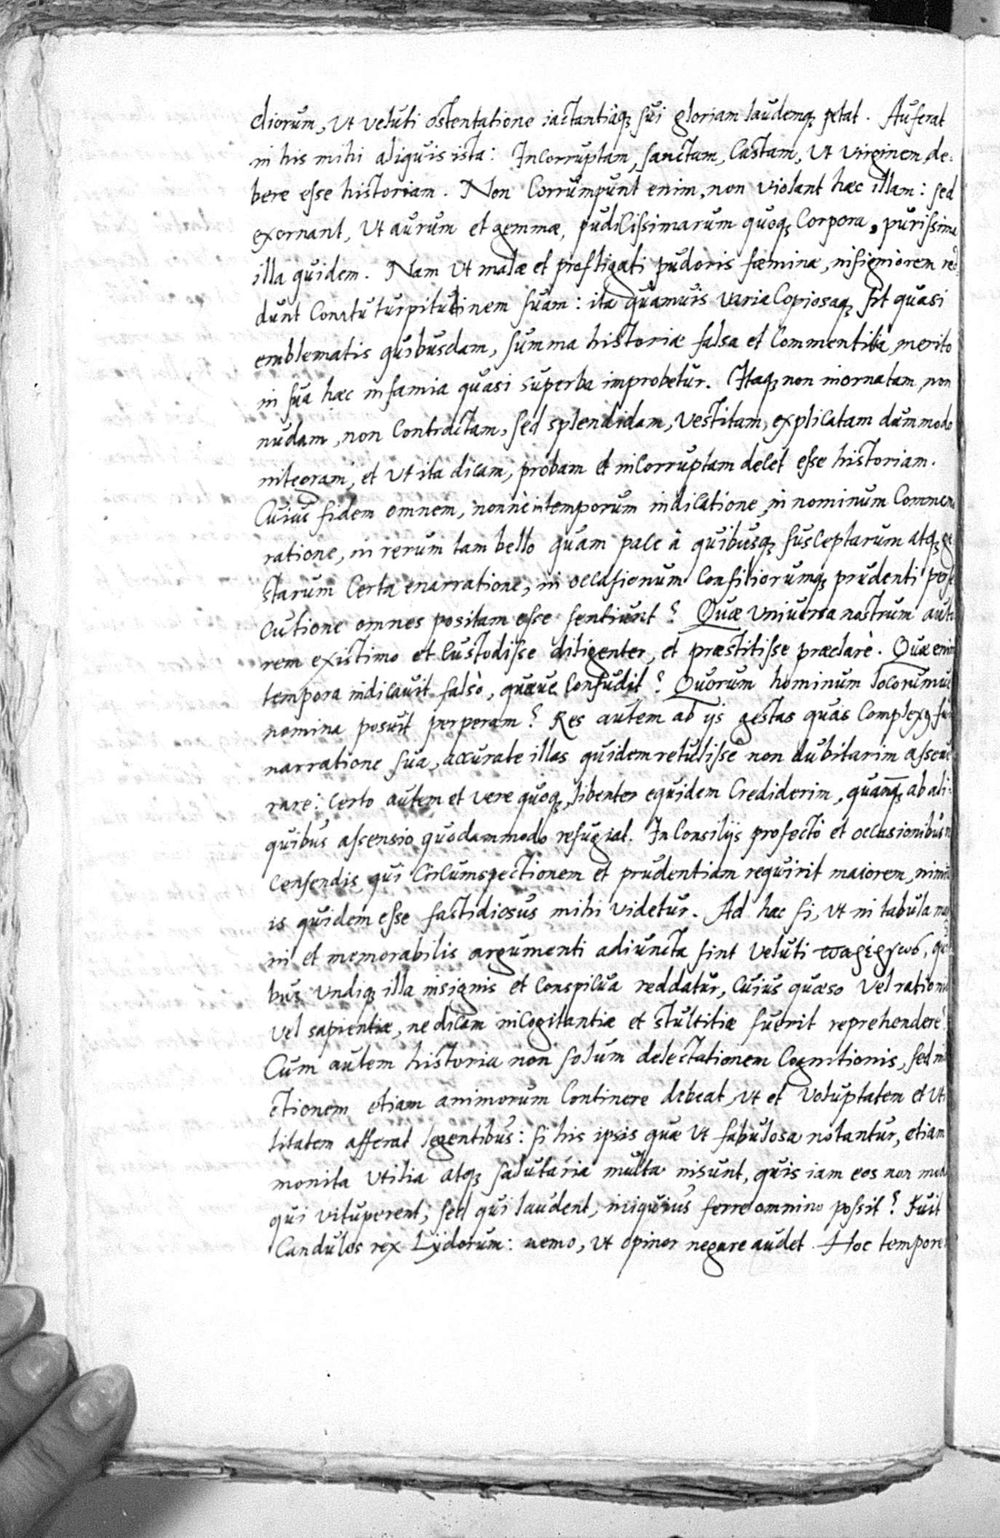 diorum, ut veluti ostentatione iactantiaq; sui gloriam laudemq; petat. Auferat
in his mihi aliquis ista: Incorruptam, sanctam, Castam, Ut virginem, de:
bere esse historiam. Non Corrumpunt enim, non violant hæc illam: sed
exornant, Ut aurum et gemmæ, pudicissimarum quoq; Corpora, purissima
illa quidem. Nam Ut malæ et profligati pudoris fœminæ, insigniorem red
dunt turpitudinem suam: ita quamuis varia Copiosaq; sit quasi
emblematis quibusdam, summa historiæ falsa et Commentitia, merito
in sua hæc infamia quasi superba improbetur. Itaq; non inornatam, non
nudam, non Contractam, sed splendidam, Vestitam, explicatam dummodo
integram, et Ut ita dicam, probam et inCorruptam decet esse historiam.
Cuius fidem omnem, nonne in temporum indicatione, in nominum Commem
ratione, in rerum tam bello quam pace à quibusq; susceptarum atq; ge
starum Certa enarratione, in occasionum Consiliorumq; prudenti perse
cutione omnes positam esse sentiunt? Quæ Universa nostrum auto
rem existimo et Custodisse diligenter, et præstitisse præclarè. Quæ enim
tempora indicavit falsò, quæve Confudit? Quorum hominum locorumue
nomina posuit perperam? Res autem ab ijs gestas quas Complexus fu
narratione sua, accurate illas quidem retulisse non dubitarim asseue
rare: Certo autem et vere quoq; libenter equidem Crediderim, quanq; ab ali:
quibus assensio quodammodo refugiat. In Consilijs profectò et occasionibus
Censendis qui Circumspectionem et prudentiam requirit maiorem, nimiu
is quidem esse fastidiosus mihi videtur. Ad hæc si, Ut in tabula
et memorabilis argumenti adiuncta sint Veluti παρέργων, qui
bus Undiq; illa insignis et Conspicua reddatur, Cuius quæso Vel rationis
Vel sapientiæ, ne dicam inCogitantiæ et stultitiæ fuerit reprehendere
Cum autem historia non solum delectationem Cognitionis, sed in
ctionem etiam animorum Continere debeat, Ut et Voluptatem et Uti
litatem afferat legentibus: si his ipsis quæ Ut fabulosa notantur, etiam
monita Utilia atq; salutaria multa insunt, quis iam eos non modo
qui vituperent, sed qui laudent, iniquius ferre omnino possit? Fuit
Candules rex Lydorum: nemo, Ut opinor negare audet. Hoc tempore